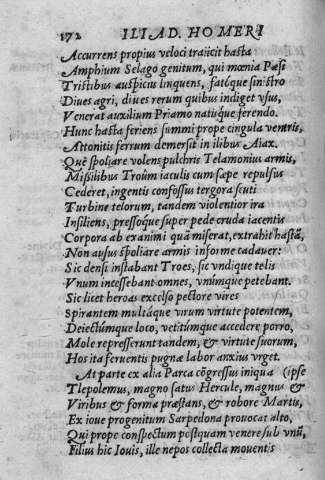 172 ILIAD. HOMERI
Accurrens propius veloci traiicit hasta
Amphium Selago genitum, qui mœnia Pæsi
Tristibus auspicijs linquens, fatóque sinistro
Diues agri, diues rerum quibus indiget vsus,
Venerat auxilium Priamo natiśque ferendo.
Hunc hasta feriens summi prope cingula ventris,
Attonitis ferrum demersit in ilibus Aiax.
Quē spoliare volens pulchris Telamonius armis,
Missilibus Troûm iaculis cum sæpe repulsus
Cederet, ingentis confossus tergora scuti
Turbine telorum, tandem violentior ira
Insiliens, pressoque super pede cruda iacentis
Corpora ab exanimi quā miserat, extrahit hastā,
Non ausus spoliare armis informe cadauer:
Sic densi instabant Troes, sic vndique telis
Vnum incessebant omnes, vnúmque petebant.
Sic licet heroas excelso pectore vires
Spirantem multáque virum virtute potentem,
Deiectúmque loco, vetitúmque accedere porro,
Mole represserunt tandem, & virtute suorum,
Hos ita feruentis pugnæ labor anxius vrget.
At parte ex alia Parca cōgressus iniqua (ipse
Tlepolemus, magno satus Hercule, magnus &
Viribus & forma præstans, & robore Martis,
Ex Ioue progenitum Sarpedona prouocat alto,
Qui prope conspectum postquam venere sub vnū,
Filius hic Iouis, ille nepos collecta mouentis